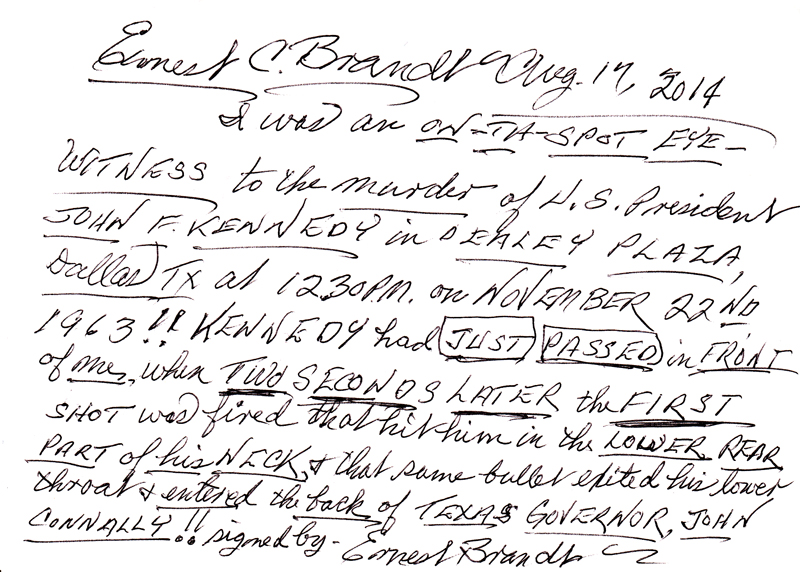 Ernest C. Brandt Aug. 17, 2014
I was an ON-TH-SPOT EYE-
WITNESS to the murder of U.S. President
JOHN F. KENNEDY in DEALEY PLAZA,
Dallas, TX at 12:30 P.M. on NOVEMBER 22ND
1963!! KENNEDY had JUST PASSED in FRONT
of me, when TWO SECONDS LATER the FIRST
SHOT was fired that hit him in the LOWER REAR
PART of his NECK, & that same bullet exited his lower
throat & entered the back of TEXAS GOVERNOR, JOHN
CONNALLY!! signed by - Ernest Brandt